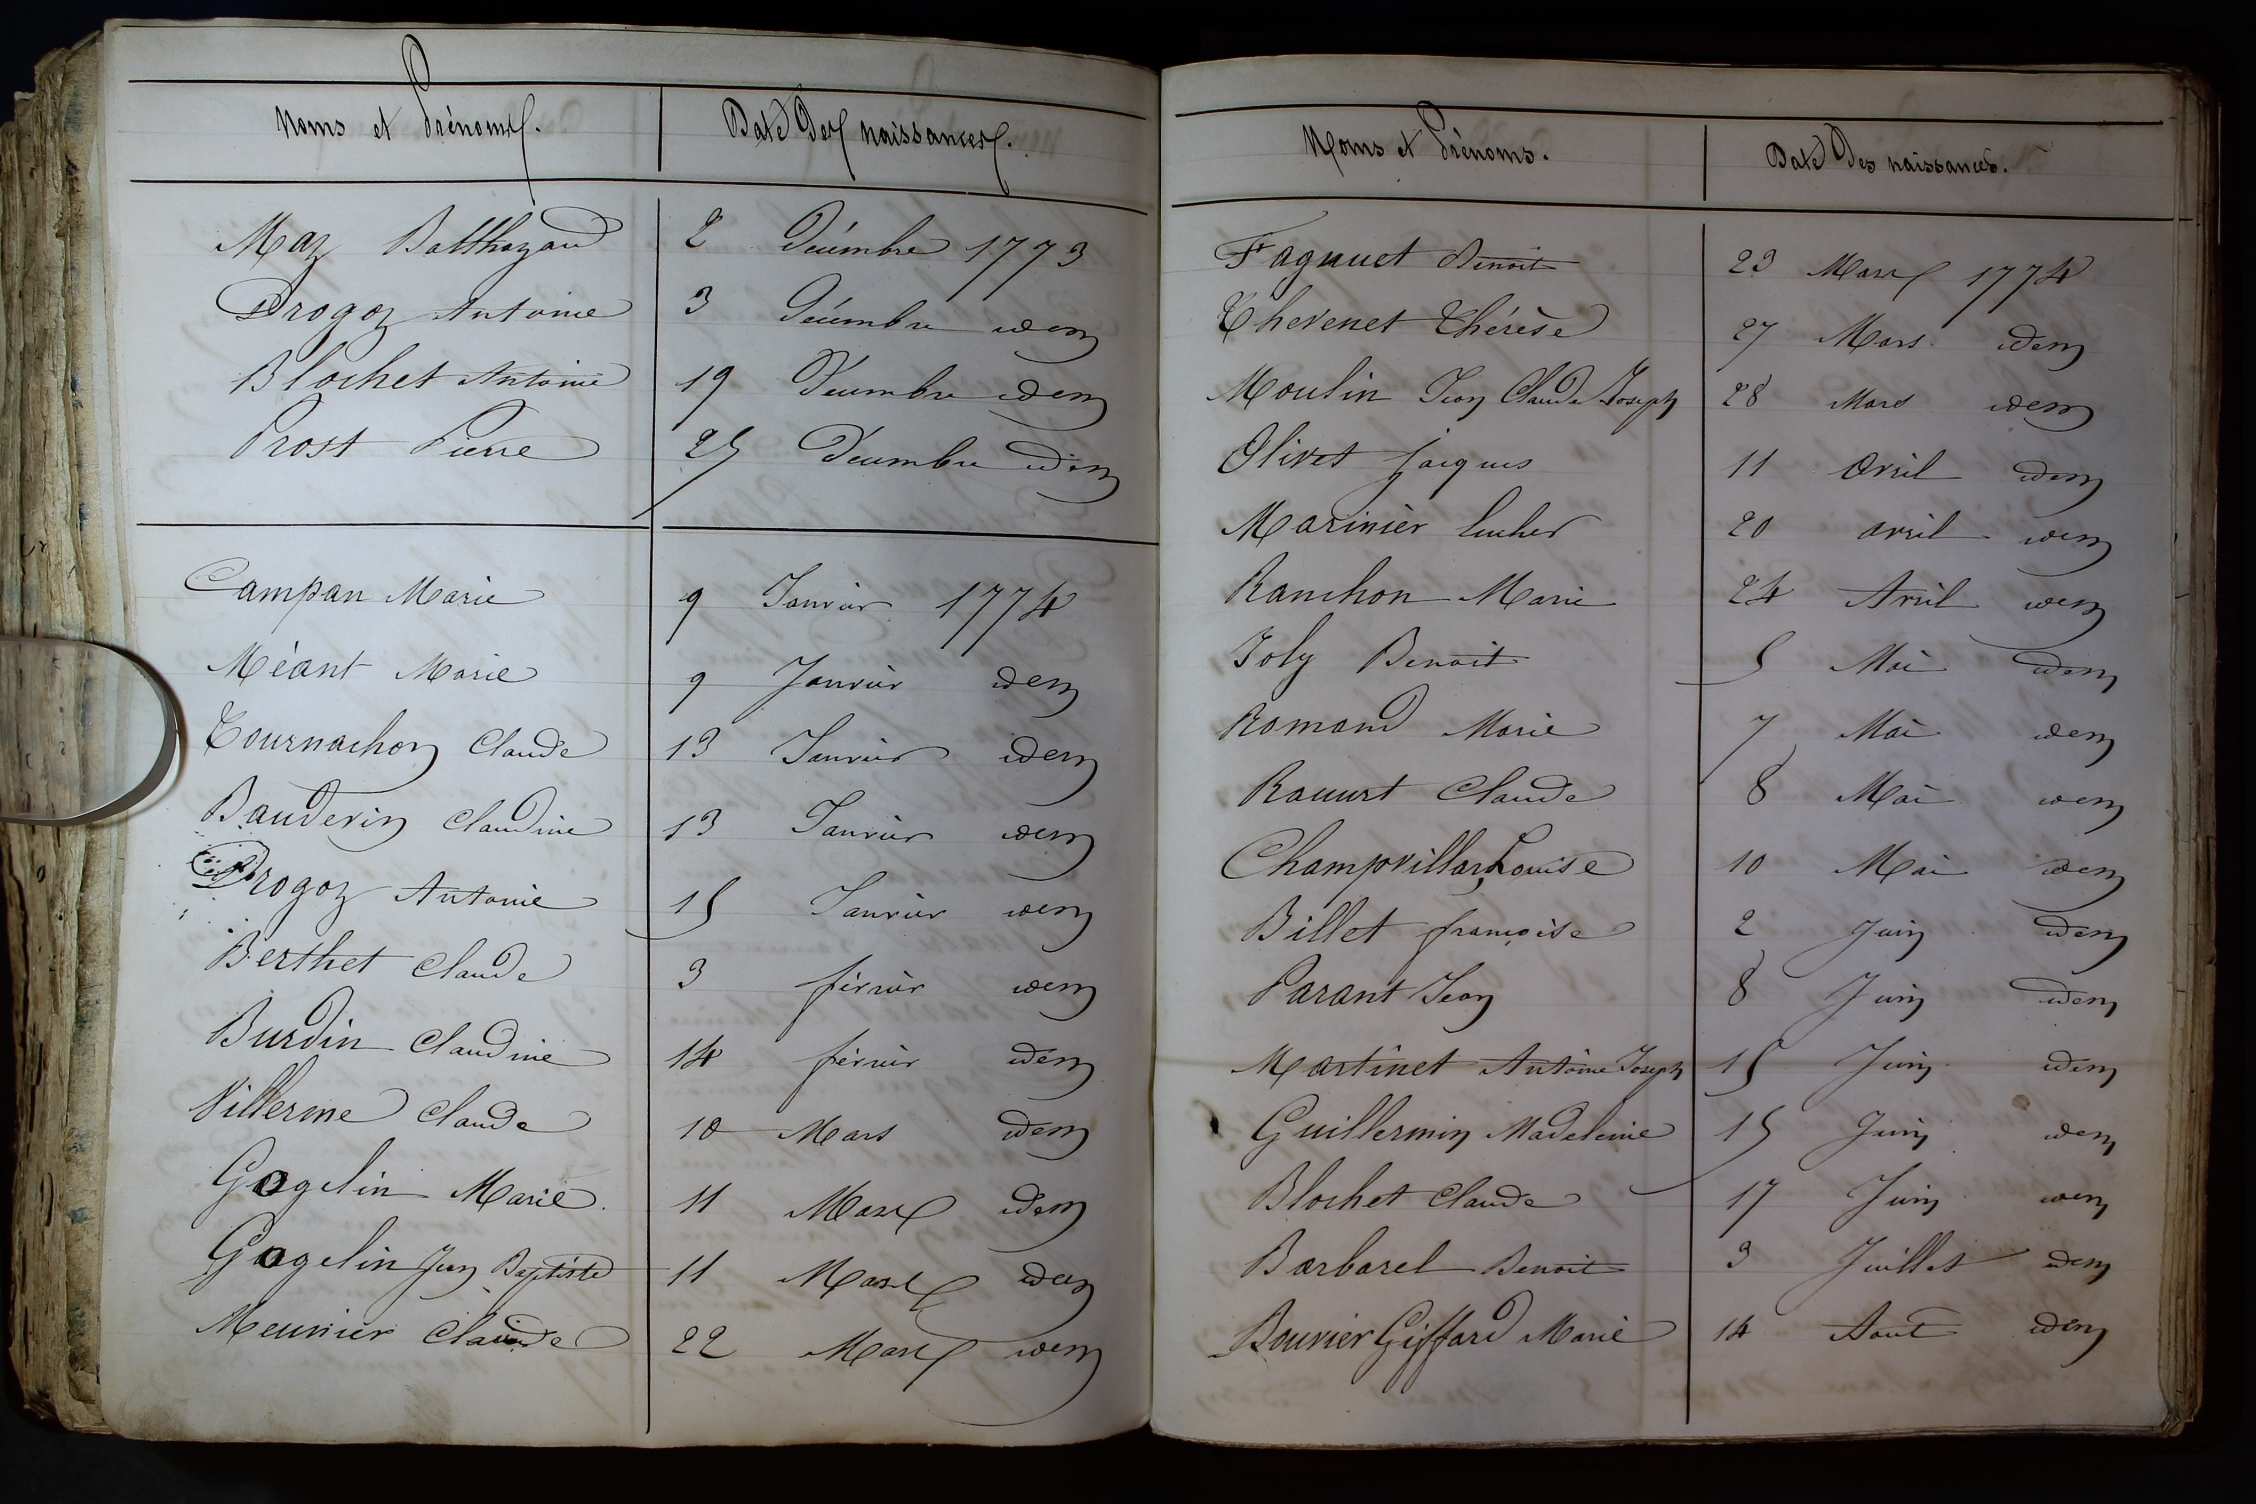 Noms et Prénoms.
Date Des naissances.
Maz Balthazard 2 Décembre 1773
Drogoz Antoine 3 Décembre idem
Blochet Antoine 19 Décembre idem
Prost Pierre 25 Décembre idem
Campan Marie 9 Janvier 1774
Méant Marie 9 Janvier idem
Tournachon Claude 13 Janvier idem
Bauderin Claudine 13 Janvier idem
Drogoz Antoine 15 Janvier idem
Berthet Claude 3 février idem
Burdin Claudine 14 février idem
Villerme Claude 10 Mars idem
Gogelin Marie. 11 Mars idem
Gogelin Jean Baptiste 11 Mars idem
Meunier Claude 22 Mars idem
Noms et Prénoms.
Date Des naissances.
Faguuet Benoit 23 Mars 1774
Thevenet Thérèse 27 Mars idem
Moulin Jean Claude Joseph 28 Mars idem
Olivet Jacques 11 avril idem
Marinier 20 avril idem
Ranchon Marie 24 Avril idem
Joly Benoit 5 Mai idem
Romand Marie 7 Mai idem
Claude 8 Mai idem
Champvillard Louise 10 Mai idem
Billet françoise 2 Juin idem
Parant Jean 8 Juin idem
Martinet Antoine Joseph 15 Juin idem
Guillermin Madeleine 15 Juin idem
Blochet Claude 17 Juin idem
Barbarel Benoit 3 Juillet idem
Bouvier Giffard Marie 14 Aout idem